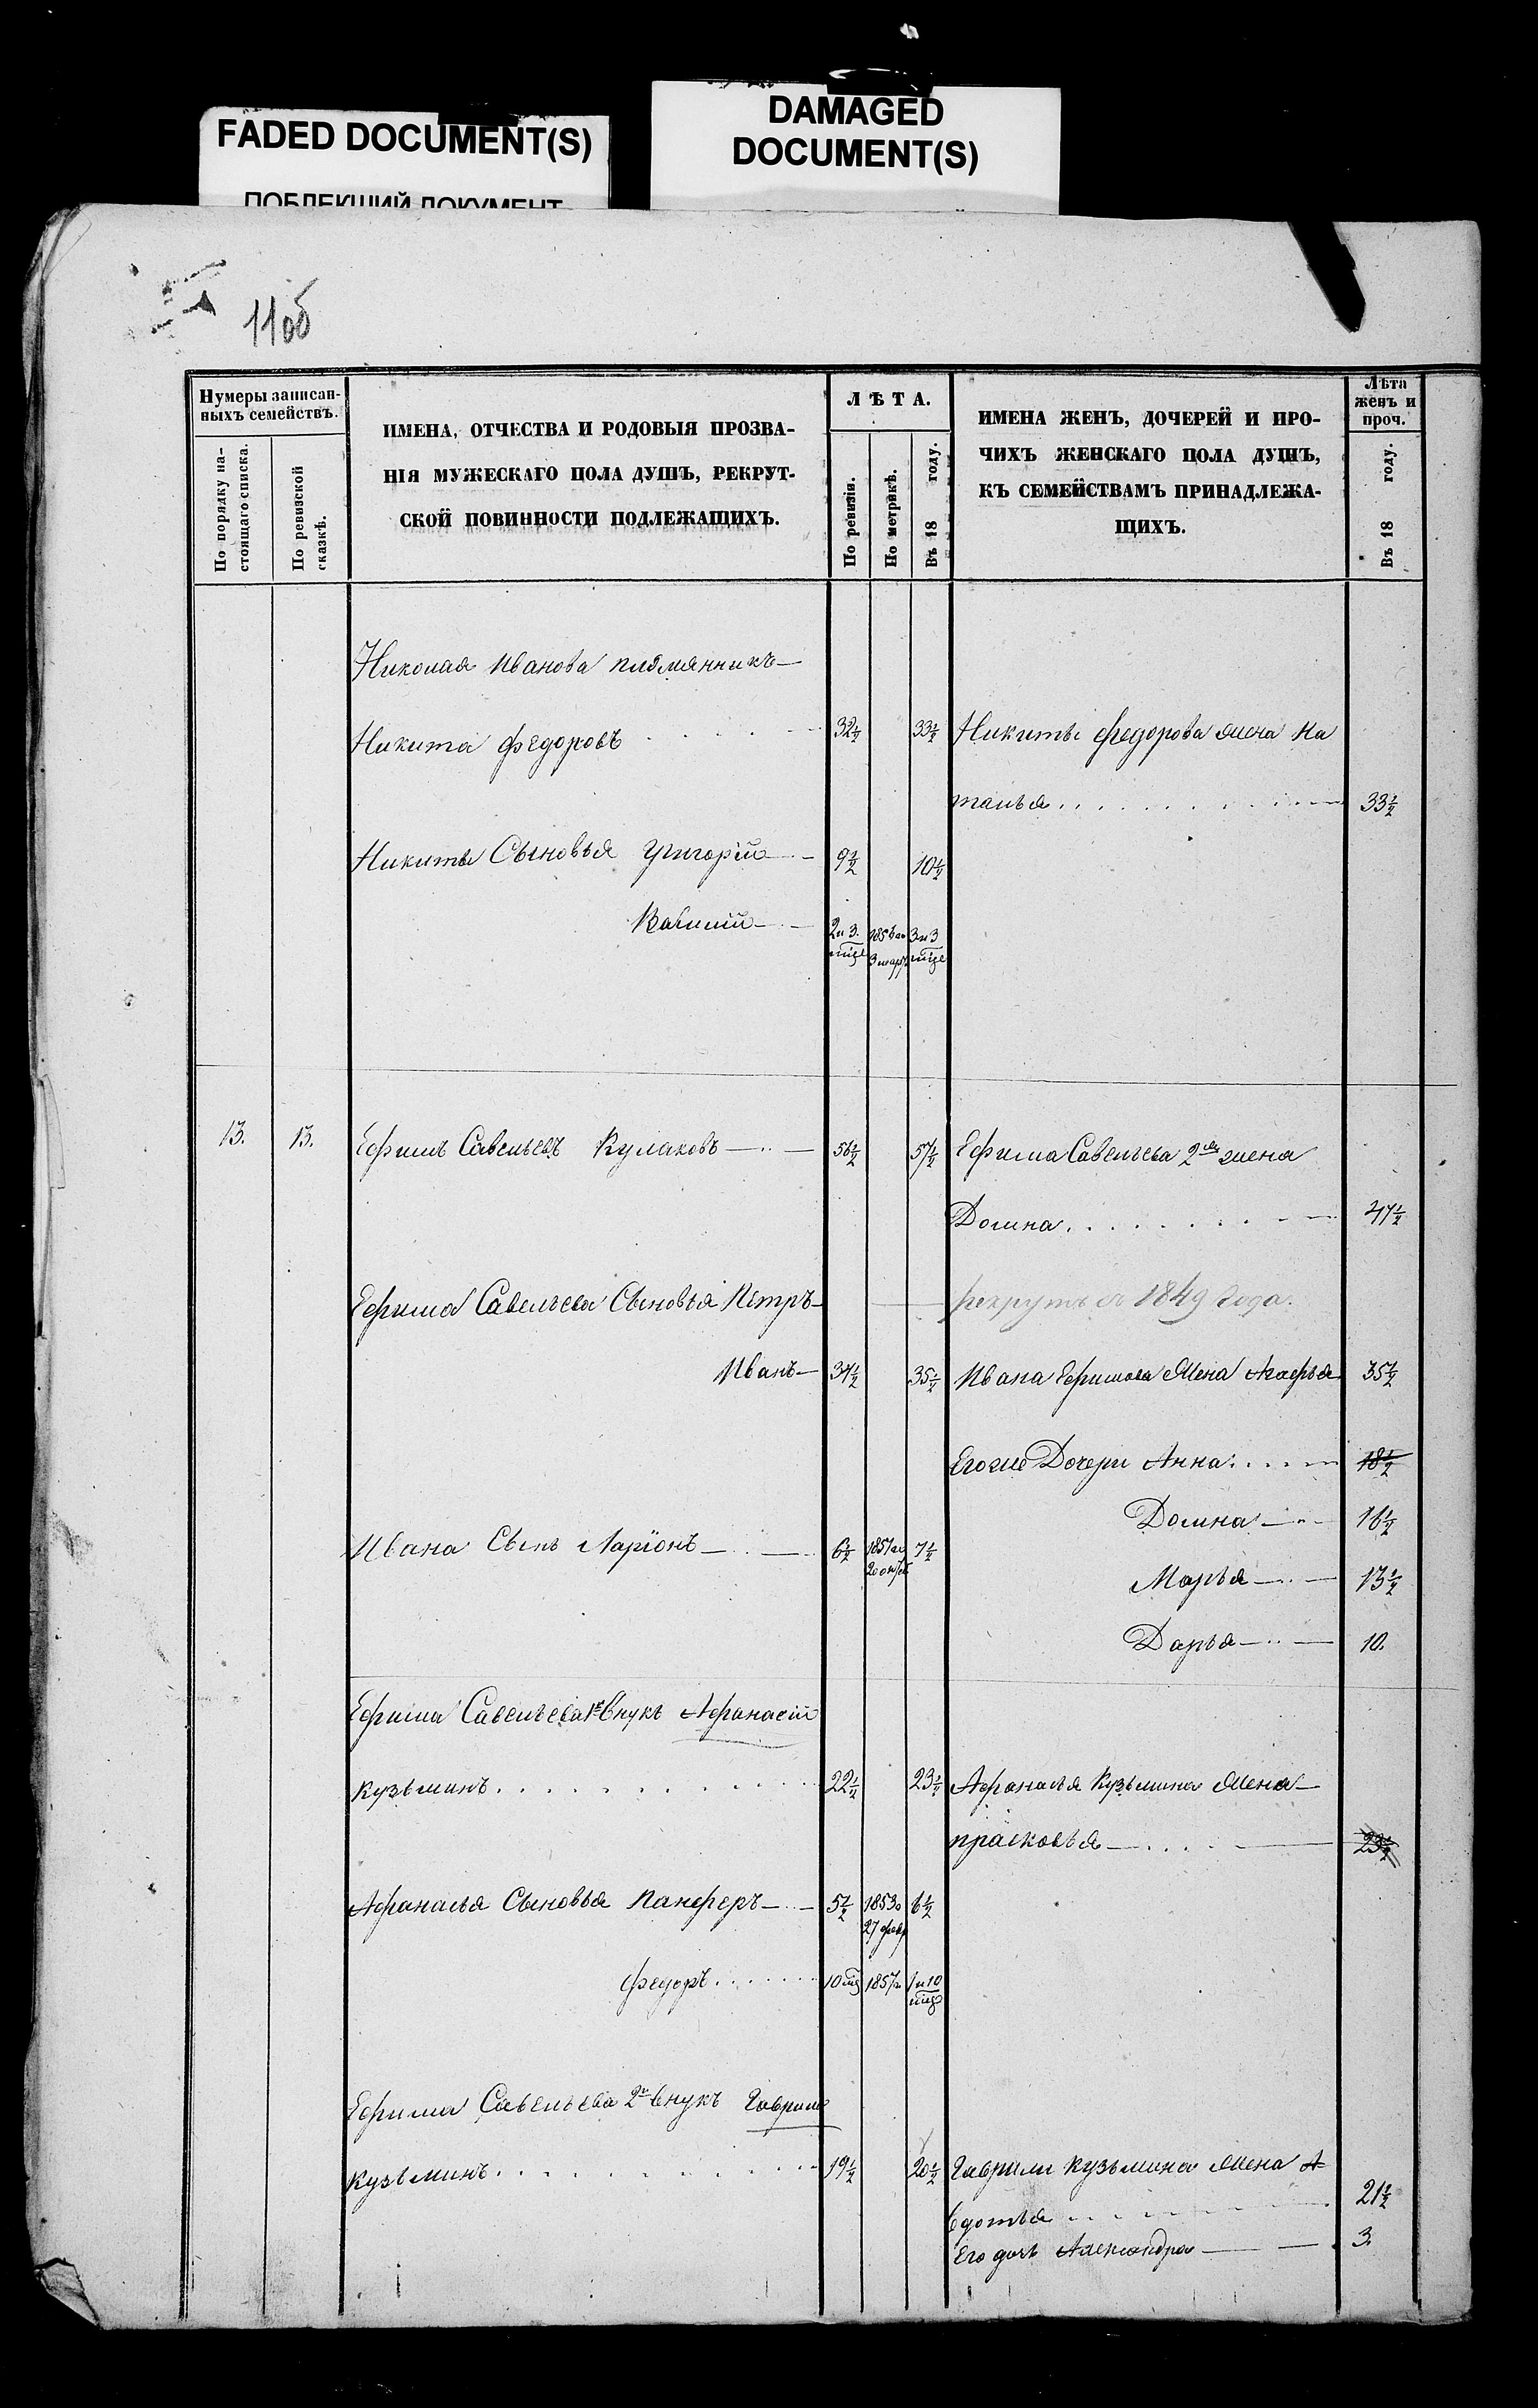 FADED DOCUMENT(S)
ПОБЛЕКШИЙ ДОКУМЕНТ
DAMAGED
DOCUMENT(S)
11об
Нумеры записан-
ныхъ семействъ.
По порядку на-
стоящаго списка.
По ревизской
сказкѣ.
ИМЕНА, ОТЧЕСТВА И РОДОВЫЯ ПРОЗВА-
НІЯ МУЖЕСКАГО ПОЛА ДУШЪ, РЕКРУТ-
СКОЙ ПОВИННОСТИ ПОДЛЕЖАЩИХЪ.
ЛѢТА.
По ревизіи.
По метрикѣ.
Въ 18 году.
ИМЕНА ЖЕНЪ, ДОЧЕРЕЙ И ПРО-
ЧИХЪ ЖЕНСКАГО ПОЛА ДУШЪ,
КЪ СЕМЕЙСТВАМЪ ПРИНАДЛЕЖА-
ЩИХЪ.
Лѣта
женъ и
проч.
Въ 18 году.
Николая Иванова племянникъ
Никита Федоровъ 32½ 33½ Никиты Федорова жена На
талья 33½
Никиты Сыновья Григорій 9½ 10½
Василій 2 и 3 мѣс 3 мар 3 и 3 мѣс
13. 13. Ефимъ Савельевъ Кулаковъ 56½ 57½ Ефима Савельева 2я жена
Домна 47½
Ефима Савельева Сыновья Петръ рекрутъ съ 1849 года.
Иванъ 34½ 35½ Ивана Ефимова Жена Агафья 35½
Его же Дочери Анна 18½
Домна 16½
Ивана Сынъ Ларіонъ 6½ 20 7½
Марья 13½
Дарья 10.
Ефима Савельева 1й Внукъ Афанасій
Кузьминъ 22½ 23½ Афанасья Кузьмина Жена
Прасковья 23½
Афанасья Сыновья Панферъ 5½ 1853 27 фев 6½
Федоръ 10 мѣс 1857 1 и 10 мѣс
Ефима Савельева 2й Внукъ Гаврило
Кузьминъ 19½ 20½ Гаврилы Кузьмина Жена А
вдотья 21½
Его дочь Александра 3.